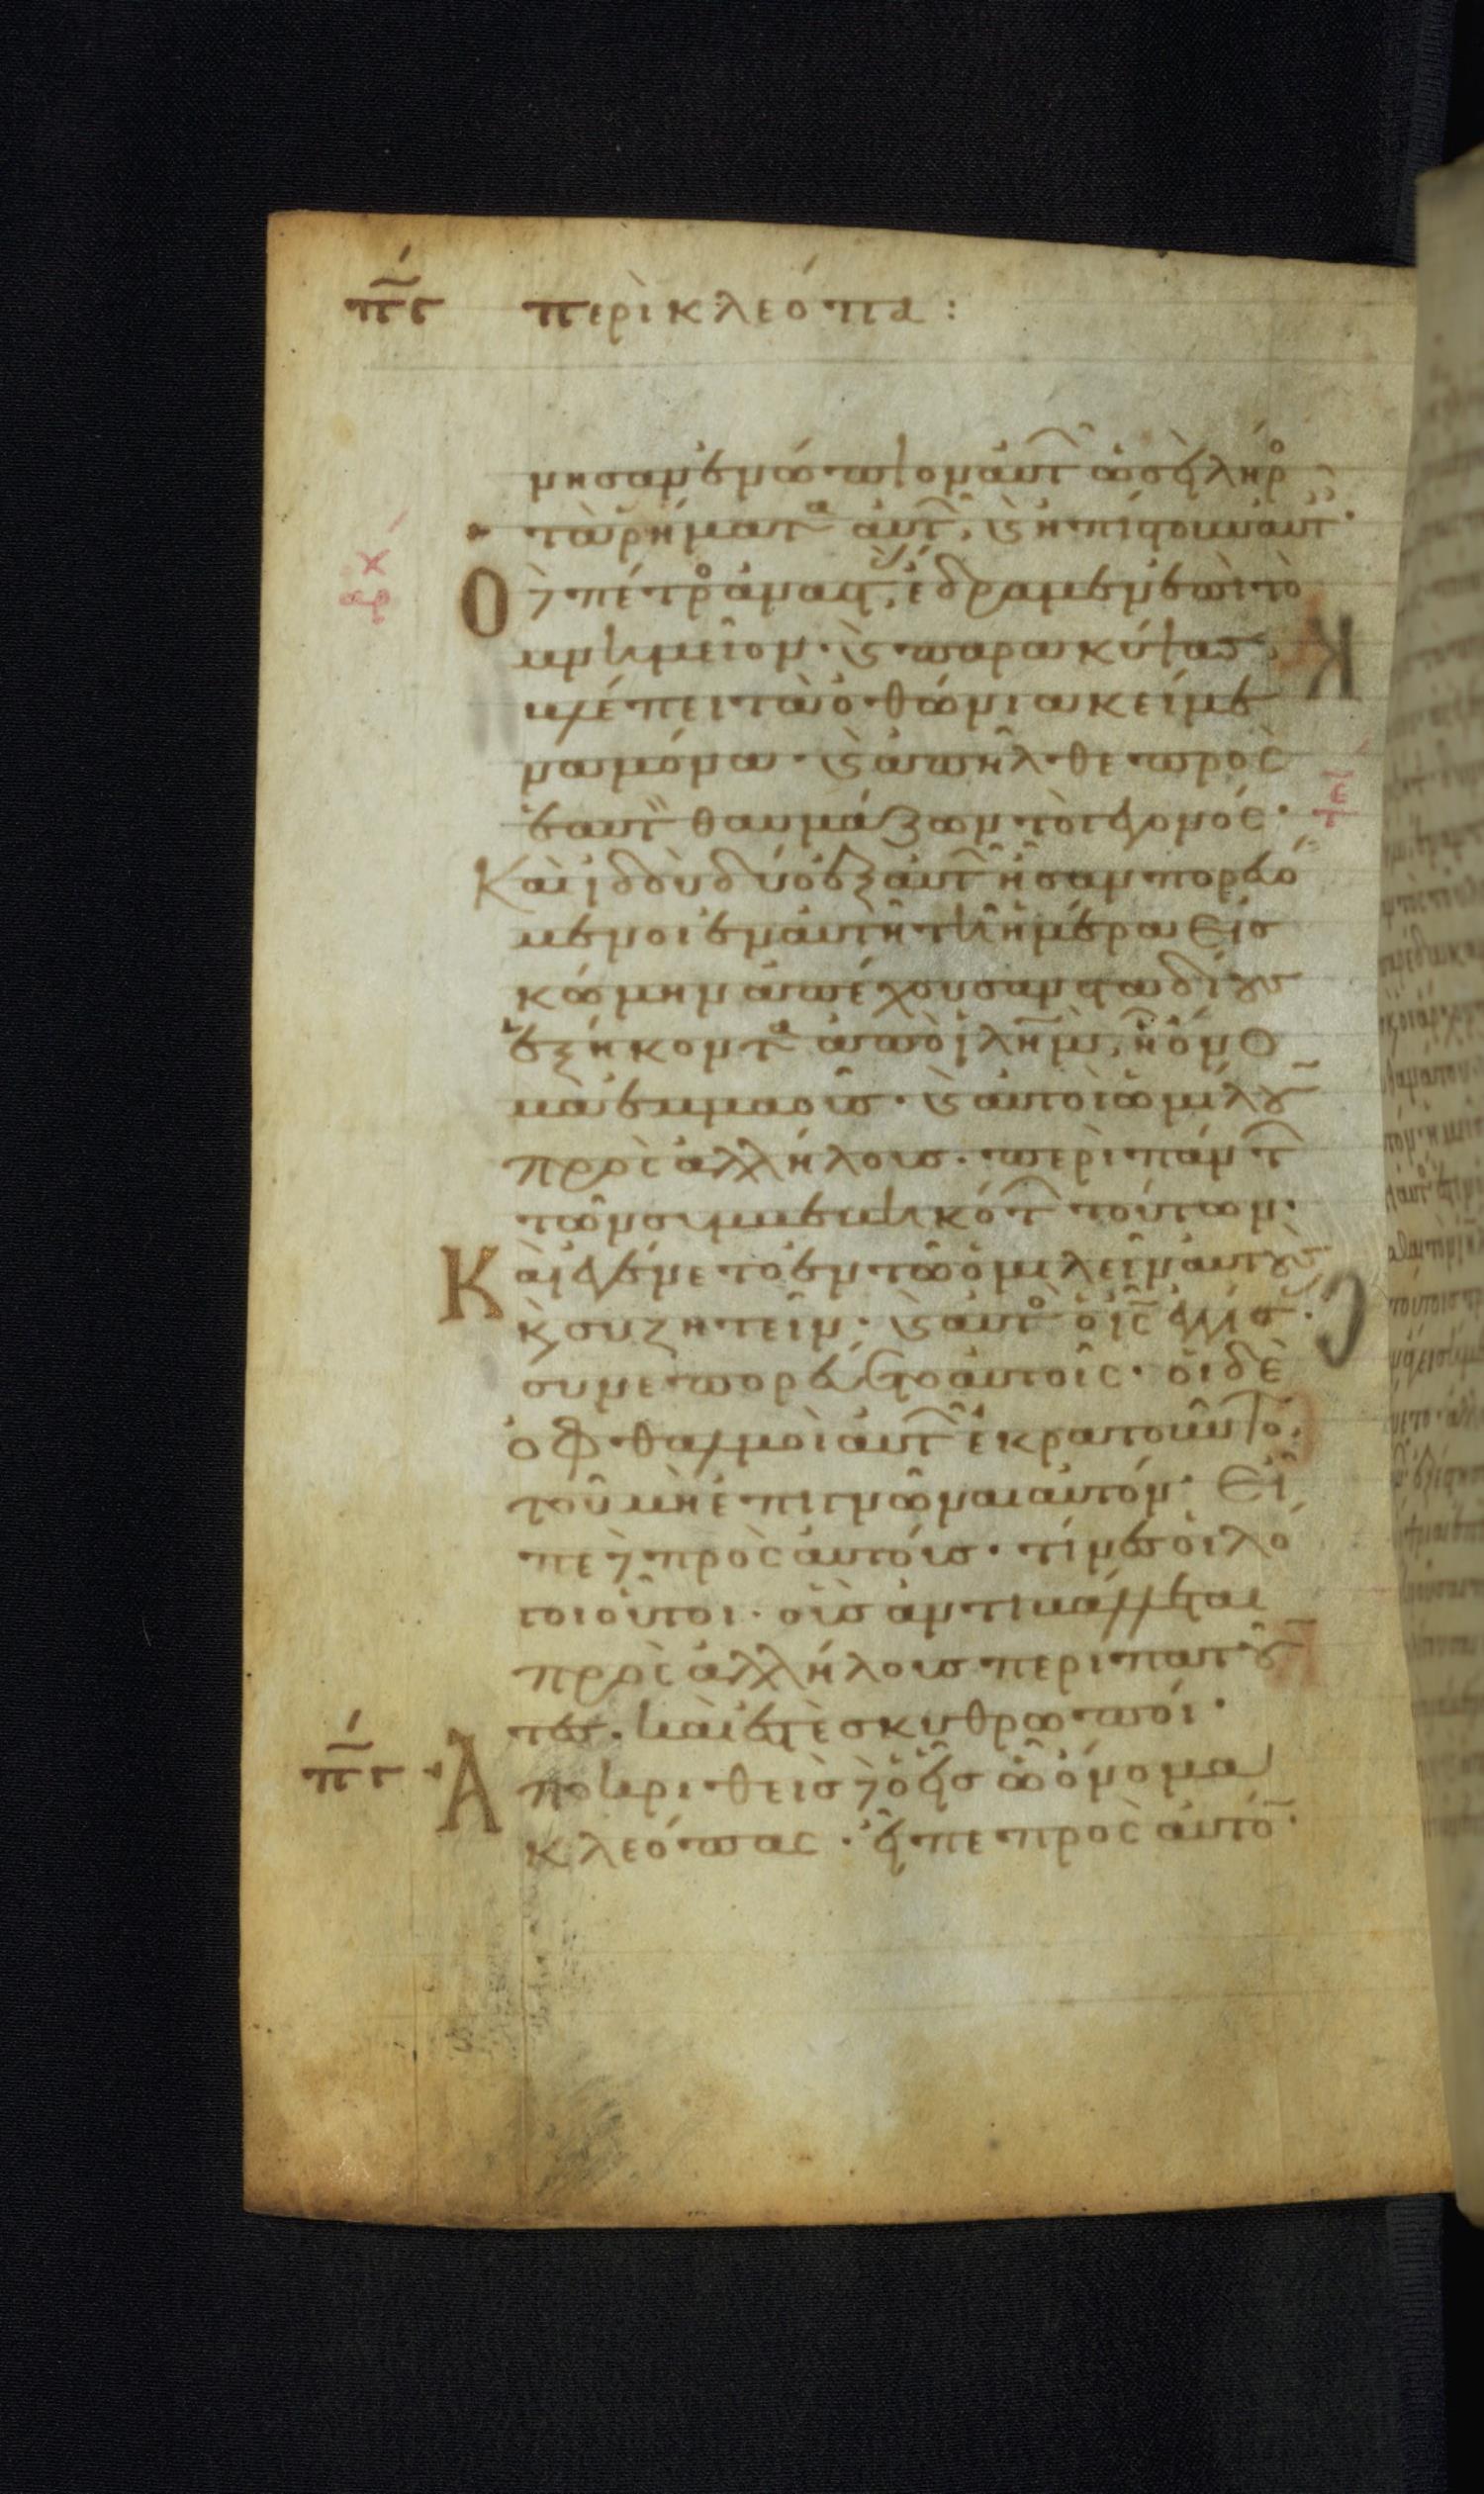 πς περὶ κλεόπα:
νησαν ἐνώπιον αὐτ ὡσεὶ λῆρ
τὰ ρήματα αὐτ, κ ἠπίστουν αὐτ.
αρχ
Ὁ δὲ πέτρο ἀναστ, ἔδραμεν ἐπὶ τὸ
μνημεῖον. κ παρακύψας,
βλέπει τὰ ὀθόνια κείμε
να μόνα. κ ἀπῆλθε πρὸς
ἑαυτ θαυμάζων τὸ γεγονός.
τε
Καὶ ἰδοὺ δύο ἐξ αὐτ ἦσαν πορευό
μενοι ἐν αὐτῆ τῆ ἡμέρα εἰσ
κώμην ἀπέχουσαν σταδίους
ἑξήκοντα ἀπὸ ἰλημ, ἧ ὄνο
μα ἐμμαούς. κ αὐτοὶ ὡμίλου
πρὸς ἀλλήλους. περὶ πάντ
τῶν συμβεβηκότ τούτων.
Καὶ ἐγένετο ἐν τῶ ὁμιλεῖν αὐτοὺς
κ συζητεῖν. κ αὐτο ὁ ις ἐγγίσ.
συνεπορεύετο αὐτοῖς. οἱ δὲ
ὀφθαλμοὶ αὐτ ἐκρατοῦντο.
τοῦ μὴ ἐπιγνῶναι αὐτόν. Εἶ
πε δὲ πρὸς αὐτούς. τίνες οἱ λό
τοι οὗτοι. οὓς ἀντιβάλλεται
πρὸς ἀλλήλους περιπατοῦ
τες. καὶ ἐστὲ σκυθρωποί.
πς
Ἀποκριθεὶς δὲ ὁ εἷς ὧ ὄνομα
κλεόπας. εἶπε πρὸς αὐτό.